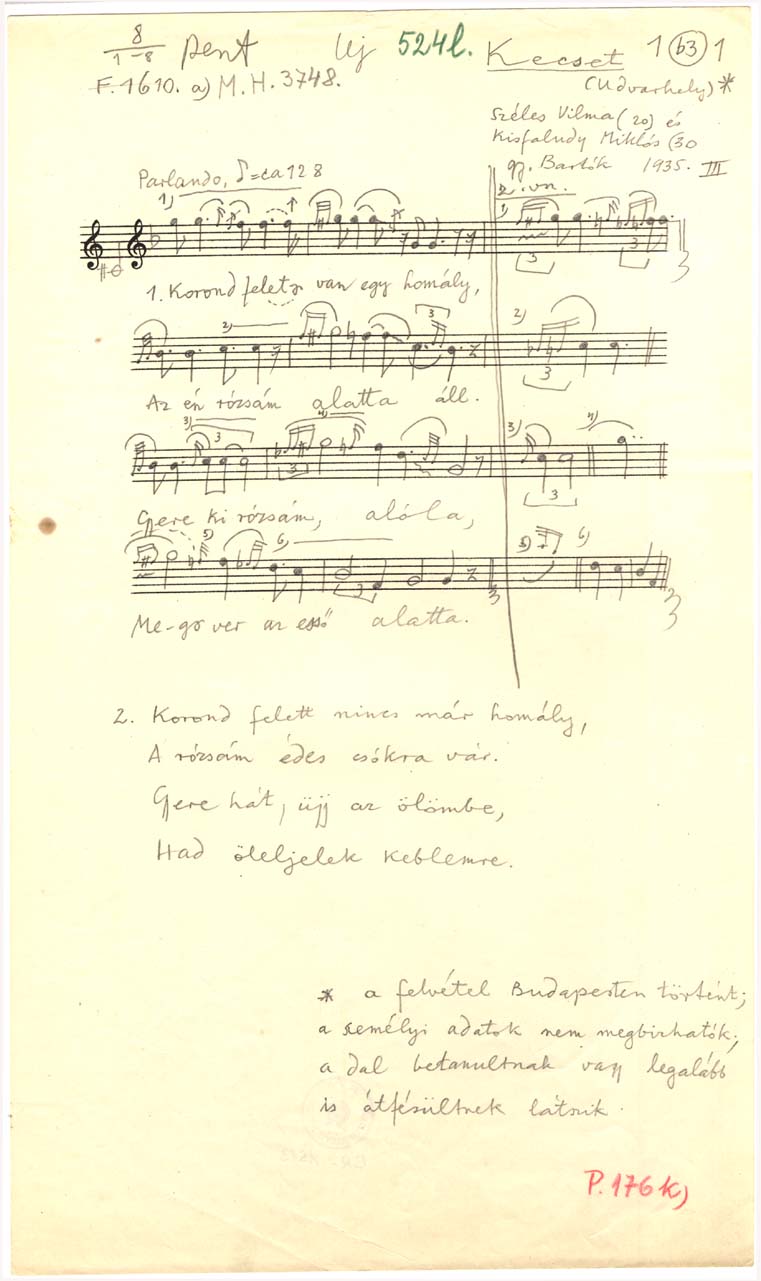 8
1-8 pent Uj 524l. Kecset 1 (b3) 1
F. 1610. a) M.H. 3748. (Udvarhely) *
Széles Vilma (20) és
Kisfaludy Miklós (30
gy. Bartók 1935. III
Parlando, ♪=ca 128
2. vsz.
1) 1) 3 3
1. Korond felett van egy homály,
2) 3 2) 3
Az én rózsám alatta áll.
3) 3 4) 3 3) 3 4)
Gyere ki rózsám, alóla,
5) 6) 3 5) 6)
Me-gver az eső alatta.
2. Korond felett nincs már homály,
A rózsám édes csókra vár.
Gyere hát, üjj az ölömbe,
Had öleljelek keblemre.
* a felvétel Budapesten történt;
a személyi adatok nem megbizhatók;
a dal betanultnak vagy legalább
is átfésültnek látszik.
P. 176 k)